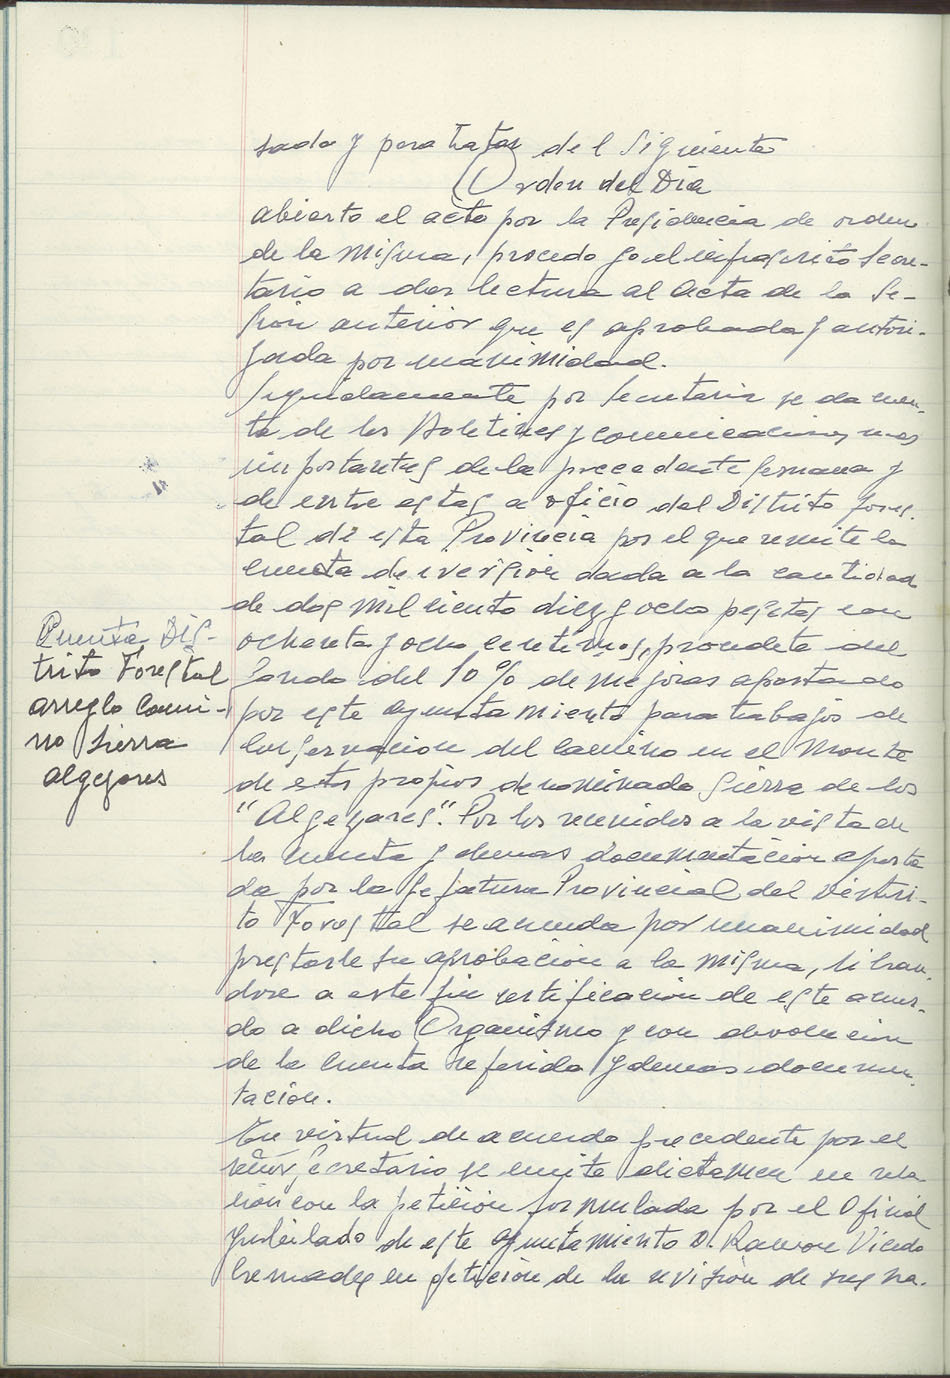 sada y para tratar del Siguiente
Orden del Dia
abierto el acto por la Presidencia de orden
de la misma, procedo yo el infrascrito Secre-
tario a dar lectura al acta de la Se-
sión anterior que es aprobada y autori-
zada por unanimidad.
Seguidamente por Secretaria se da cuen-
ta de los Boletines y comunicaciones mas
importantes de la precedente semana y
de entre estas a oficio del Distrito fores-
tal de esta Provincia por el que remite la
cuenta de iversion dada a la cantidad
de dos mil ciento diez y ocho pesetas con
ochenta y ocho centimos, procedete del
fondo del 10% de mejoras aportado
por este ayuntamiento para trabajos de
conservacion del camino en el Monte
de estos propios denominado Sierra de los
"Algezares". Por los reunidos a la vista de
la cuenta y demas documentacion aporta
da por la Jefatura Provincial del Distri-
to Forestal se acuerda por unanimidad
prestarle su aprobacion a la misma, libran-
dose a este fin certificacion de este acuer-
do a dicho Organismo y con devolucion
de la cuenta referida y demas documen-
tacion.
En virtud de acuerdo precedente por el
señor Secretario se emite dictamen en rela
cion con la peticion formulada por el Oficial
jubilado de este Ayuntamiento D. Ramon Vicedo
en peticion de la revision de sus ha-
Cuenta Dis-
trito Forestal
arreglo Cami-
no Sierra
algezares